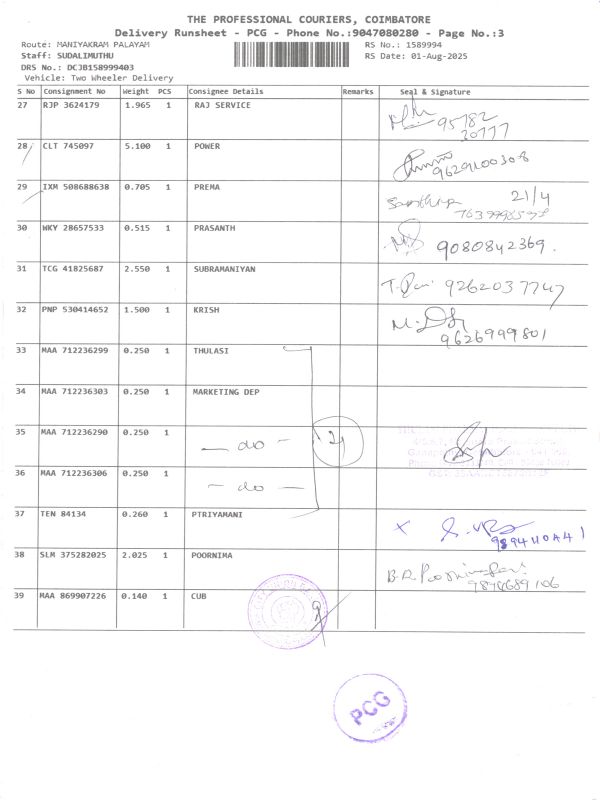 THE PROFESSIONAL COURIERS, COIMBATORE
Delivery Runsheet - PCG - Phone No.:9047080280 - Page No.:3
Route: MANIYAKRAM PALAYAM RS No.: 1589994
Staff: SUDALIMUTHU RS Date: 01-Aug-2025
DRS No.: DCJB158999403
Vehicle: Two Wheeler Delivery
S No Consignment No Weight PCS Consignee Details Remarks Seal & Signature
27 RJP 3624179 1.965 1 RAJ SERVICE
95782
30777
28 CLT 745097 5.100 1 POWER
9629100308
29 IXM 508688638 0.705 1 PREMA
21/4
30 WKY 28657533 0.515 1 PRASANTH
9080842369.
31 TCG 41825687 2.550 1 SUBRAMANIYAN
9262037747
32 PNP 530414652 1.500 1 KRISH
9626999801
33 MAA 712236299 0.250 1 THULASI
34 MAA 712236303 0.250 1 MARKETING DEP
35 MAA 712236290 0.250 1 — do —
36 MAA 712236306 0.250 1 — do —
37 TEN 84134 0.260 1 PTRIYAMANI
38 SLM 375282025 2.025 1 POORNIMA
9894689106
39 MAA 869907226 0.140 1 CUB
PCG